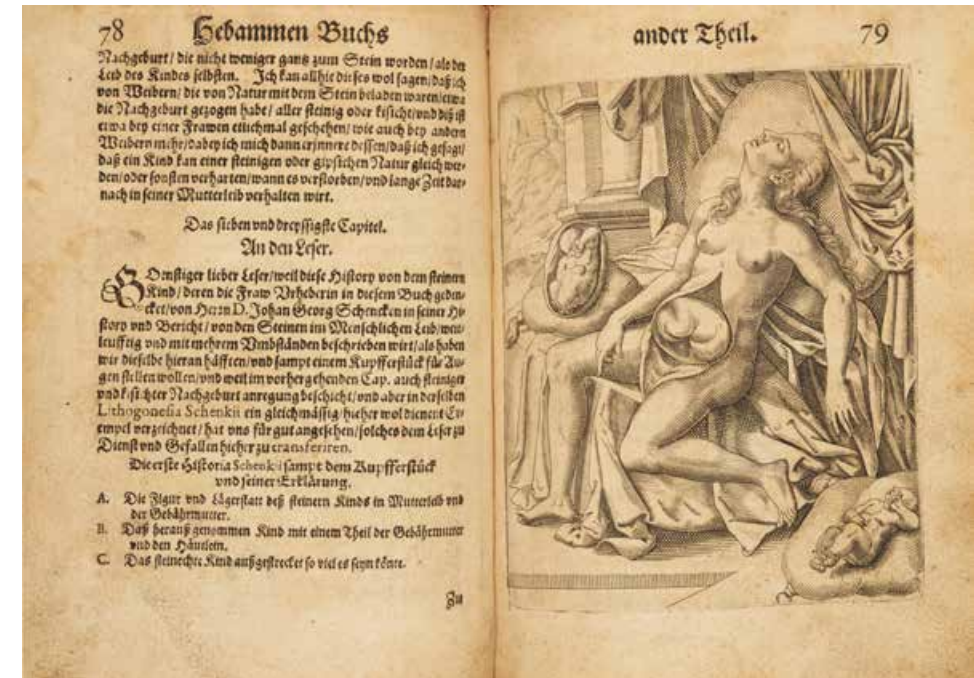 78 Hebammen Buchs
Nachgeburt / die nicht weniger gantz zum Stein worden / als der
Leib des Kindes selbsten. Ich kan allhie dieses wol sagen / daß ich
von Weibern / die von Natur mit dem Stein beladen waren / etwa
die Nachgeburt gezogen habe / aller steinig oder kisicht / vnd diß ist
etwa bey einer Frawen etlichmal geschehen / wie auch bey andern
Weibern mehr / dabey ich mich dann erjnnere dessen / daß ich gesagt /
daß ein Kind kan einer steinigen oder gipsichen Natur gleich wer-
den / oder sonsten verharten / wann es verstorben / vnd lange Zeit dar-
nach in seiner Mutterleib verhalten wirt.
Das sieben vnd dreyssigste Capitel.
An den Leser.
GOnstiger lieber Leser / weil diese History von dem steinern
Kind / deren die Fraw Vrheberin in diesem Buch geden-
cket / von Herrn D. Johan Georg Schencken in seiner Hi-
story vnd Bericht / von den Steinen im Menschlichen Leib / weit-
leufftig vnd mit mehrem Vmbständen beschrieben wirt / als haben
wir dieselbe hieran häfften / vnd sampt einem Kupfferstück für Au-
gen stellen wollen / vnd weil im vorher gehenden Cap. auch steiniger
vnd kisichter Nachgeburt anregung beschicht / vnd aber in derselben
Lithogonesia Schenkii ein gleichmässig / hieher wol dienent Ex-
empel verzeichnet / hat vns für gut angesehen / solches dem Leser zu
Dienst vnd Gefallen hieher zu transferiren.
Die erste Historia Schenkii sampt dem Kupfferstück
vnd seiner Erklärung.
A. Die Figur vnd Lägerstatt deß steinern Kinds in Mutterleib vnd
der Gebährmutter.
B. Daß herauß genommen Kind mit einem Theil der Gebährmutter
vnd den Häutlein.
C. Das steinechte Kind außgestrecket so viel es seyn könte.
Zu
ander Theil. 79